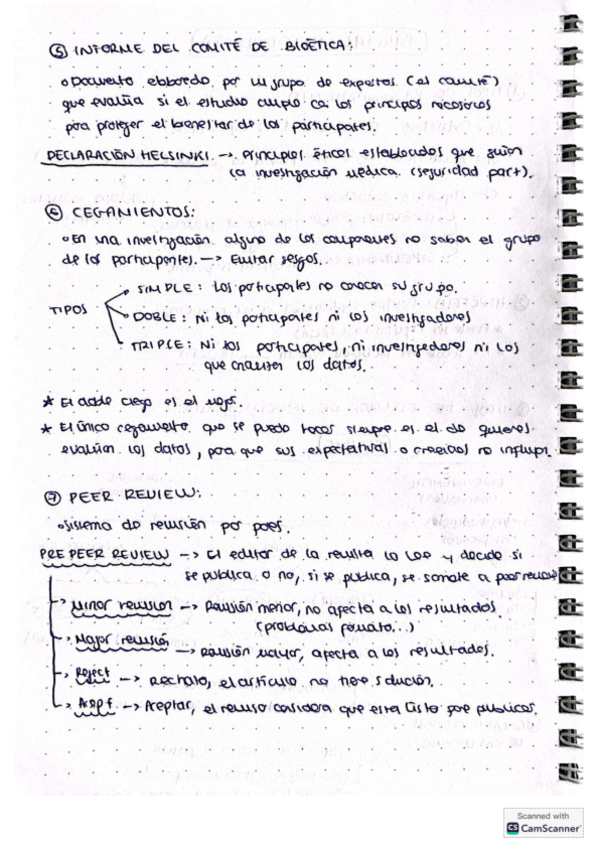 ⑤ INFORME DEL COMITÉ DE BIOÉTICA:
• Documento elaborado por un grupo de expertos (el comité)
que evalúa si el estudio cumple con los principios necesarios
para proteger el bienestar de los participantes.
DECLARACIÓN HELSINKI. → principios éticos establecidos que guían
la investigación médica. (seguridad part).
⑥ CEGAMIENTOS:
• En una investigación alguno de los componentes no saben el grupo
de los participantes. → Evitar sesgos.
SIMPLE: Los participantes no conocen su grupo.
TIPOS DOBLE: Ni los participantes ni los investigadores
TRIPLE: Ni los participantes, ni investigadores ni los
que analizan los datos.
★ El doble ciego es el mejor.
★ El único cegamiento que se puede hacer siempre es el de quienes
evalúan los datos, para que sus expectativas o creencias no influyan.
⑦ PEER REVIEW:
• Sistema de revisión por pares.
PRE PEER REVIEW → El editor de la revista lo lee y decide si
se publica o no, si se publica, se somete a peer review
Minor revision → Revisión menor, no afecta a los resultados.
(problemas formato...)
Major revisión → Revisión mayor, afecta a los resultados.
Reject → Rechazo, el artículo no tiene solución.
→ Aceptar, el revisor considera que está listo para publicar.
Scanned with
CS CamScanner